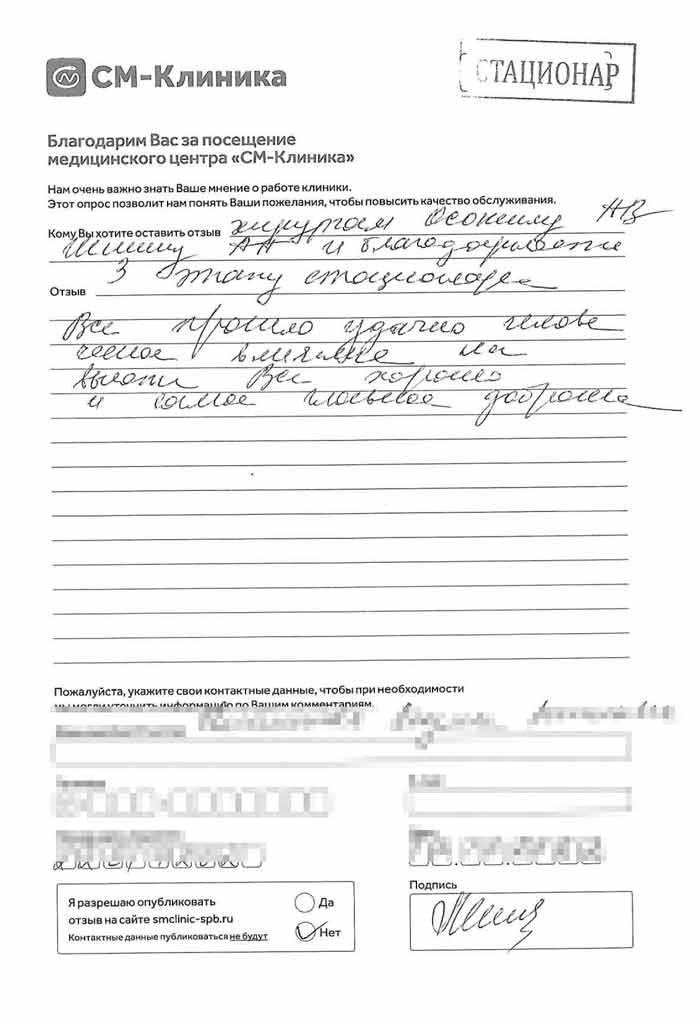 СМ-Клиника
СТАЦИОНАР
Благодарим Вас за посещение
медицинского центра «СМ-Клиника»
Нам очень важно знать Ваше мнение о работе клиники.
Этот опрос позволит нам понять Ваши пожелания, чтобы повысить качество обслуживания.
Кому Вы хотите оставить отзыв хирургам Осокину АВ
Шишину АН и благодарности
Отзыв 3 этажу стационара
Все прошло удачно челове
ческое на
высоте Все хорошо
и самое главное доброта
Пожалуйста, укажите свои контактные данные, чтобы при необходимости
мы могли уточнить информацию по Вашим комментариям.
Я разрешаю опубликовать
отзыв на сайте smclinic-spb.ru
Контактные данные публиковаться не будут
Да
Нет
Подпись